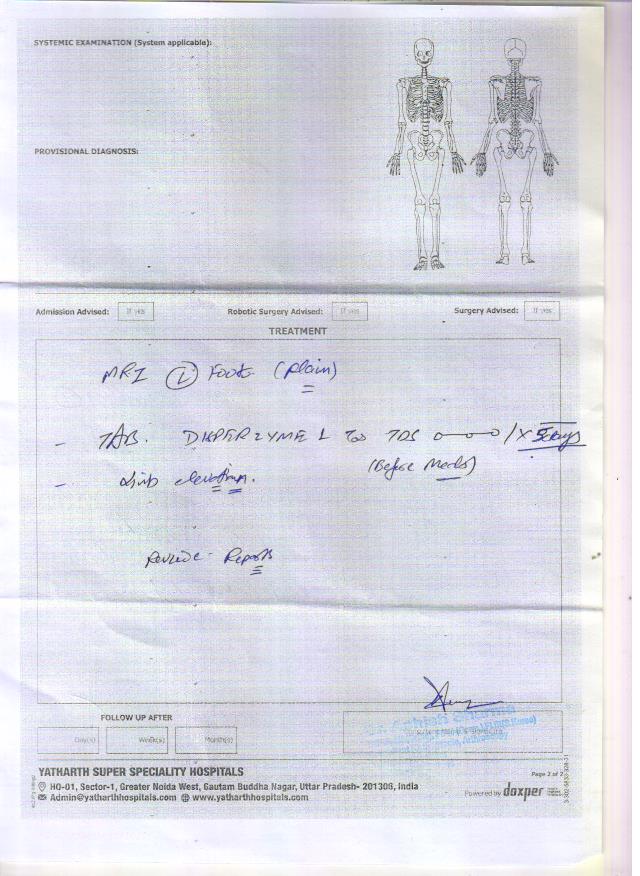 SYSTEMIC EXAMINATION (System applicable):
PROVISIONAL DIAGNOSIS:
Admission Advised: If yes Robotic Surgery Advised: If yes Surgery Advised: If yes
TREATMENT
MRI (L) Foot (Plain)
- TAB. DISPERZYME 1 TDS o—o—o /X 5days
(Before Meals)
- Limb elevation.
Review Reports
FOLLOW UP AFTER
Day(s) Week(s) Month(s)
YATHARTH SUPER SPECIALITY HOSPITALS
HO-01, Sector-1, Greater Noida West, Gautam Buddha Nagar, Uttar Pradesh- 201306, India
Admin@yatharthhospitals.com www.yatharthhospitals.com
Page 2 of 2
Powered by doxper